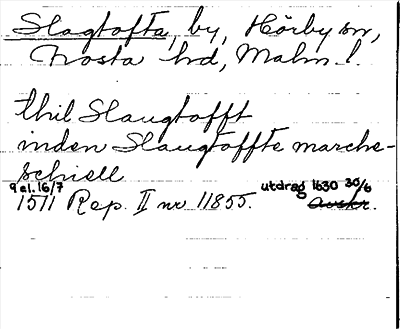 Slagtofta, by, Hörby sn,
Frosta hd, Malm. l.
thil Slaugtofft
inden Slaugtoffte marche-
schiell
9 el. 16/7 utdrag 1630 30/6
1511 Rep. II nr 11855. avskr.